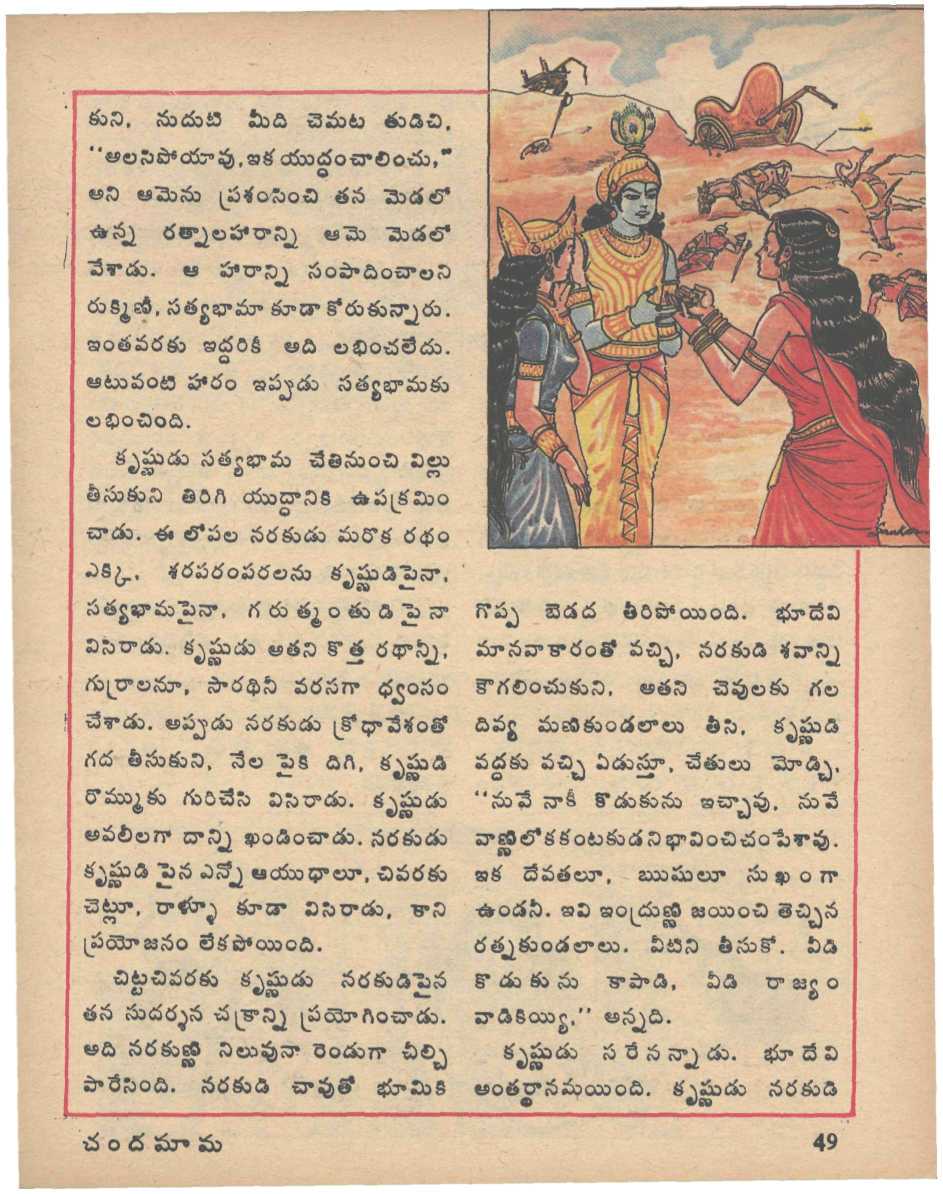 కుని, నుదుటి మీది చెమట తుడిచి,
"అలసిపోయావు, ఇక యుద్ధంచాలించు,"
అని ఆమెను ప్రశంసించి తన మెడలో
ఉన్న రత్నాలహారాన్ని ఆమె మెడలో
వేశాడు. ఆ హారాన్ని సంపాదించాలని
రుక్మిణీ, సత్యభామా కూడా కోరుకున్నారు.
ఇంతవరకు ఇద్దరికీ అది లభించలేదు.
ఆటువంటి హారం ఇప్పుడు సత్యభామకు
లభించింది.
కృష్ణుడు సత్యభామ చేతినుంచి విల్లు
తీసుకుని తిరిగి యుద్ధానికి ఉపక్రమిం
చాడు. ఈ లోపల నరకుడు మరొక రథం
ఎక్కి, శరపరంపరలను కృష్ణుడిపైనా,
సత్యభామపైనా, గరుత్మంతుడిపైనా
విసిరాడు. కృష్ణుడు అతని కొత్త రథాన్నీ,
గుర్రాలనూ, సారథినీ వరసగా ధ్వంసం
చేశాడు. అప్పుడు నరకుడు క్రోధావేశంతో
గద తీసుకుని, నేల పైకి దిగి, కృష్ణుడి
రొమ్ముకు గురిచేసి విసిరాడు. కృష్ణుడు
అవలీలగా దాన్ని ఖండించాడు. నరకుడు
కృష్ణుడి పైన ఎన్నో ఆయుధాలూ, చివరకు
చెట్లూ, రాళ్ళూ కూడా విసిరాడు, కాని
ప్రయోజనం లేకపోయింది.
చిట్టచివరకు కృష్ణుడు నరకుడిపైన
తన సుదర్శన చక్రాన్ని ప్రయోగించాడు.
అది నరకుణ్ణి నిలువునా రెండుగా చీల్చి
పారేసింది. నరకుడి చావుతో భూమికి
గొప్ప బెడద తీరిపోయింది. భూదేవి
మానవాకారంతో వచ్చి, నరకుడి శవాన్ని
కౌగలించుకుని, అతని చెవులకు గల
దివ్య మణికుండలాలు తీసి, కృష్ణుడి
వద్దకు వచ్చి ఏడుస్తూ, చేతులు మోడ్చి,
"నువే నాకీ కొడుకును ఇచ్చావు, నువే
వాణ్ణిలోకకంటకుడనిభావించిచంపేశావు.
ఇక దేవతలూ, ఋషులూ సుఖంగా
ఉండనీ. ఇవి ఇంద్రుణ్ణి జయించి తెచ్చిన
రత్నకుండలాలు. వీటిని తీసుకో. వీడి
కొడుకును కాపాడి, వీడి రాజ్యం
వాడికియ్యి," అన్నది.
కృష్ణుడు సరేనన్నాడు. భూదేవి
అంతర్ధానమయింది. కృష్ణుడు నరకుడి
చందమామ
49